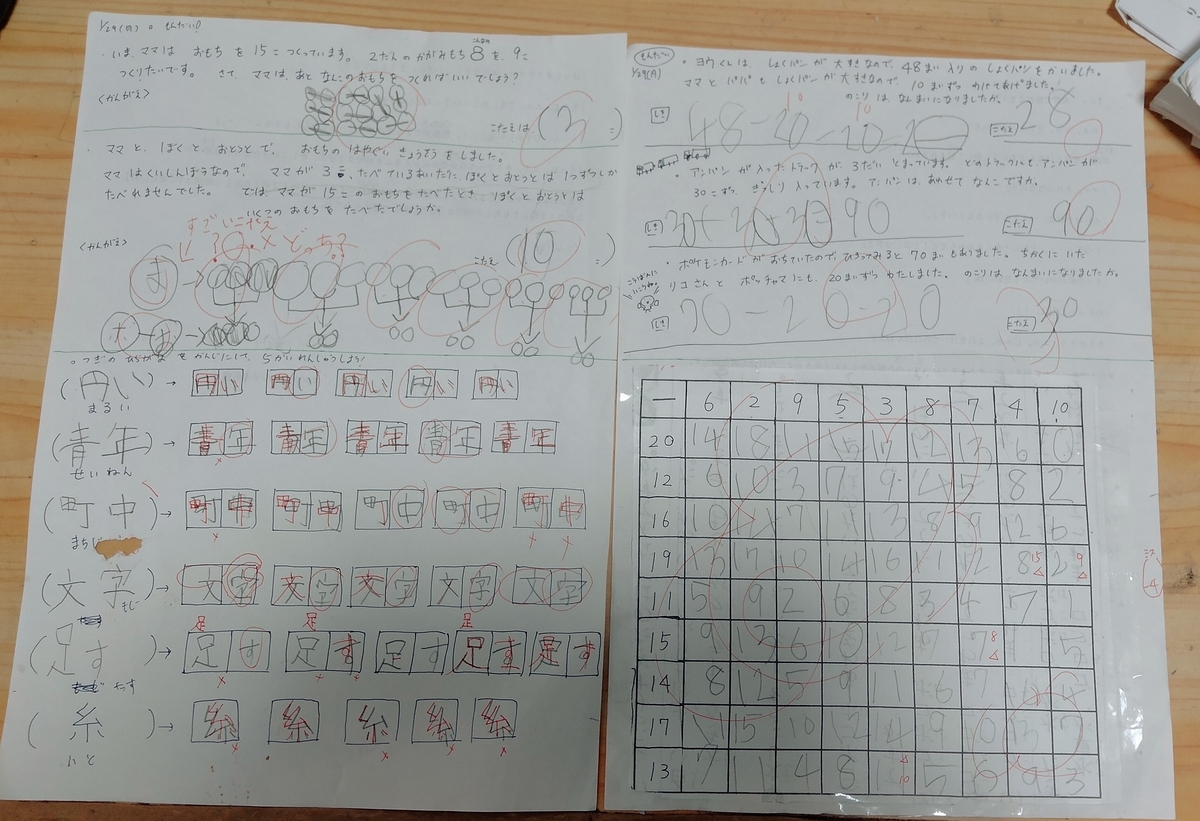 1/29(月) 。もんだい!
・いま、ママは おもち を 15こ つくっています。 2だん の かがみもち 8 を、9こ
つくりたいです。 さて、ママは、あと なんこ の おもち を つくれば いい でしょう?
<かんがえ>
こたえは (3 こ)
・ママ と、ぼく と、おとうと で、 おもち の はやぐい きょうそう を しました。
ママ は くいしんぼう なので、 ママ が 3こ、たべている あいだに、ぼく と おとうと は 1つずつ しか
たべれませんでした。 では、ママ が 15こ の おもち を たべた とき、ぼく と おとうと は
いくつ の おもち を たべた でしょうか。
すごいこたえ
どっち?
<かんがえ>
こたえ (10 こ)
。つぎの ひらがな を かんじにして、5かい れんしゅうしよう!
(円い) → 円い 円い 円い 円い 円い
まるい
(青年) → 青年 青年 青年 青年 青年
せいねん
(町中) → 町中 町中 町中 町中 町中
まち
(文字) → 文字 文字 文字 文字 文字
もじ
足 足 足
(足す) → 足す 足す 足す 足す 足す
たす
(糸) → 糸 糸 糸 糸 糸
いと
もんだい
1/29(月)
・ヨウくん は、しょくパン が 大すき なので、 48まい 入り の しょくパン を かいました。
ママ と パパ も しょくパン が 大すき なので、 10まいずつ わけてあげました。
のこり は なんまい になりましたか。
10 10
しき 48-20
こたえ 28
・アンパン が 入った トラック が、3だい とまっています。 どの トラック にも、アンパン が
30こずつ、ぎっしり 入っています。 アンパン は、あわせて なんこ ですか。
しき 30+30+30=90
こたえ 90
・ポケモンカード が おちていたので、ひろってみると 70まい もありました。 ちかくに いた
リコさん と ポッチャマ にも、20まいずつ わたしました。 のこり は なんまい になりましたか。
しき 70-20-20
こたえ 30
― 6 2 9 5 3 8 7 4 10
20 14 18 11 15 17 12 13 16 10
12 6 10 3 7 9 4 5 8 2
16 10 14 7 11 13 8 9 12 6
19 13 17 10 14 16 11 12 8 15 2 9
11 5 9 2 6 8 3 4 7 1
15 9 13 6 10 12 7 7 8 11 5
14 8 12 5 9 11 6 7 10 4
17 11 15 10 12 14 9 10 13 7
13 7 11 4 8 1 10 5 6 9 3